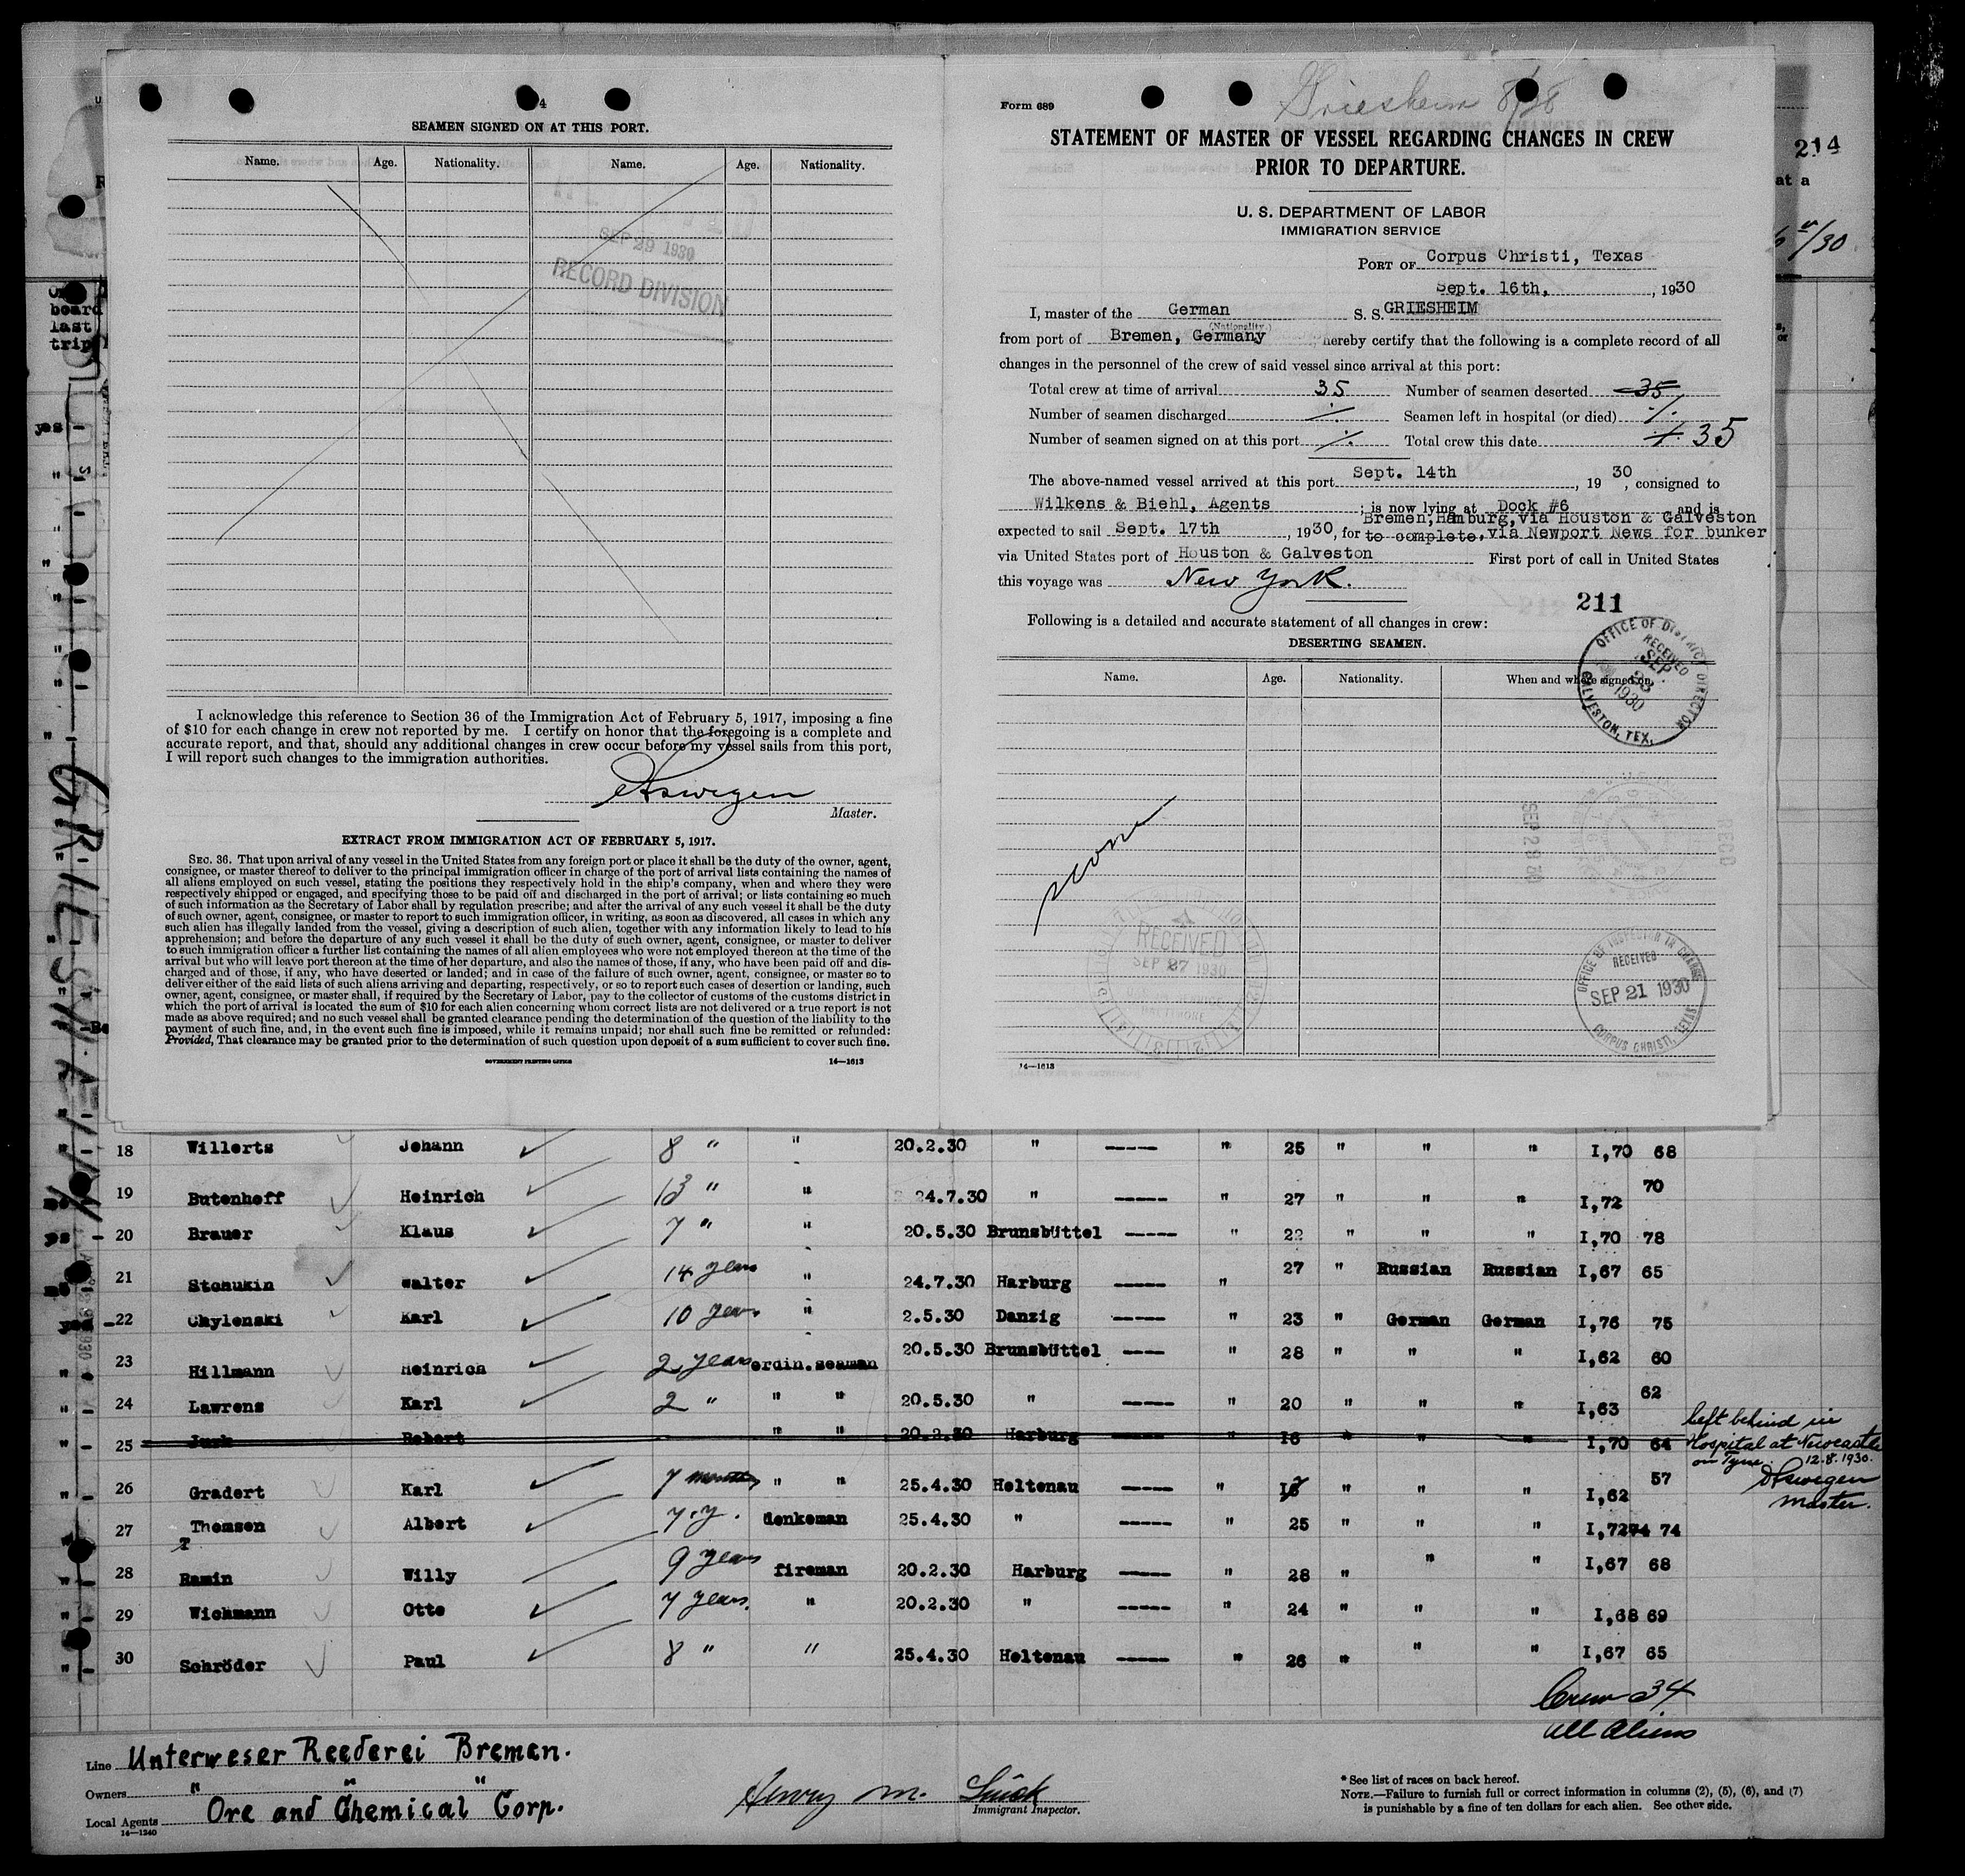 4
SEAMEN SIGNED ON AT THIS PORT.
Name. Age. Nationality. Name. Age. Nationality.
SEP 29 1930
RECORD DIVISION
I acknowledge this reference to Section 36 of the Immigration Act of February 5, 1917, imposing a fine
of $10 for each change in crew not reported by me. I certify on honor that the foregoing is a complete and
accurate report, and that, should any additional changes in crew occur before my vessel sails from this port,
I will report such changes to the immigration authorities.
Master.
EXTRACT FROM IMMIGRATION ACT OF FEBRUARY 5, 1917.
SEC. 36. That upon arrival of any vessel in the United States from any foreign port or place it shall be the duty of the owner, agent,
consignee, or master thereof to deliver to the principal immigration officer in charge of the port of arrival lists containing the names of
all aliens employed on such vessel, stating the positions they respectively hold in the ship's company, when and where they were
respectively shipped or engaged, and specifying those to be paid off and discharged in the port of arrival; or lists containing so much
of such information as the Secretary of Labor shall by regulation prescribe; and after the arrival of any such vessel it shall be the duty
of such owner, agent, consignee, or master to report to such immigration officer, in writing, as soon as discovered, all cases in which any
such alien has illegally landed from the vessel, giving a description of such alien, together with any information likely to lead to his
apprehension; and before the departure of any such vessel it shall be the duty of such owner, agent, consignee, or master to deliver
to such immigration officer a further list containing the names of all alien employees who were not employed thereon at the time of the
arrival but who will leave port thereon at the time of her departure, and also the names of those, if any, who have been paid off and dis-
charged and of those, if any, who have deserted or landed; and in case of the failure of such owner, agent, consignee, or master so to
deliver either of the said lists of such aliens arriving and departing, respectively, or so to report such cases of desertion or landing, such
owner, agent, consignee, or master shall, if required by the Secretary of Labor, pay to the collector of customs of the customs district in
which the port of arrival is located the sum of $10 for each alien concerning whom correct lists are not delivered or a true report is not
made as above required; and no such vessel shall be granted clearance pending the determination of the question of the liability to the
payment of such fine, and, in the event such fine is imposed, while it remains unpaid; nor shall such fine be remitted or refunded:
Provided, That clearance may be granted prior to the determination of such question upon deposit of a sum sufficient to cover such fine.
GOVERNMENT PRINTING OFFICE 14—1613
Form 689 Griesheim
STATEMENT OF MASTER OF VESSEL REGARDING CHANGES IN CREW
PRIOR TO DEPARTURE.
U. S. DEPARTMENT OF LABOR
IMMIGRATION SERVICE
PORT OF Corpus Christi, Texas
Sept. 16th, , 1930
I, master of the German S. S. GRIESHEIM
(Nationality.)
from port of Bremen, Germany, hereby certify that the following is a complete record of all
changes in the personnel of the crew of said vessel since arrival at this port:
Total crew at time of arrival 35 Number of seamen deserted 35
Number of seamen discharged ./. Seamen left in hospital (or died) ./.
Number of seamen signed on at this port ./. Total crew this date ./. 35
The above-named vessel arrived at this port Sept. 14th , 19 30, consigned to
Wilkens & Biehl, Agents ; is now lying at Dock #6 and is
Bremen, Hamburg, via Houston & Galveston
expected to sail Sept. 17th , 1930, for to complete, via Newport News for bunker
via United States port of Houston & Galveston First port of call in United States
this voyage was New York.
211
Following is a detailed and accurate statement of all changes in crew:
DESERTING SEAMEN.
Name. Age. Nationality. When and where signed on.
OFFICE OF DISTRICT DIRECTOR
RECEIVED
SEP 23 1930
GALVESTON, TEX.
none
RECEIVED
SEP 27 1930
OFFICE OF INSPECTOR IN CHARGE
RECEIVED
SEP 21 1930
CORPUS CHRISTI, TEXAS
14—1613
214
at a
/30
board
last
trip
yes
GRIESHEIM
18 Willerts Johann 8 " " 20.2.30 " ---- " 25 " " " I,70 68
19 Butenhoff Heinrich 13 " " 24.7.30 " ---- " 27 " " " I,72 70
yes - 20 Brauer Klaus 7 " " 20.5.30 Brunsbüttel ---- " 22 " " " I,70 78
21 Stchukin Walter 14 years " 24.7.30 Harburg ---- " 27 " Russian Russian I,67 65
yes - 22 Chylenski Karl 10 years " 2.5.30 Danzig ---- " 23 " German German I,76 75
" - 23 Hillmann Heinrich 2 years ordin.seaman 20.5.30 Brunsbüttel ---- " 28 " " " I,62 60
" - 24 Lawrens Karl 2 " " " 20.5.30 " ---- " 20 " " " I,63 62
" - 25 Jurk Robert " " 20.2.30 Harburg ---- " 18 " " " I,70 64 Left behind in
Hospital at Newcastle
on Tyne. 12.8.1930.
master.
" - 26 Gradert Karl 7 months " " 25.4.30 Holtenau ---- " " " " I,62 57
" - 27 Thomsen Albert 7.y. donkeman 25.4.30 " ---- " 25 " " " I,72 74 74
" - 28 Ramin Willy 9 years fireman 20.2.30 Harburg ---- " 28 " " " I,67 68
" - 29 Wichmann Otto 7 years. " 20.2.30 " ---- " 24 " " " I,68 69
" - 30 Schröder Paul 8 " " 25.4.30 Holtenau ---- " 26 " " " I,67 65
Crew 34
All Aliens
Line Unterweser Reederei Bremen.
Owners " " "
Local Agents Ore and Chemical Corp.
14—1240
Henry M.
Immigrant Inspector.
* See list of races on back hereof.
NOTE.—Failure to furnish full or correct information in columns (2), (5), (6), and (7)
is punishable by a fine of ten dollars for each alien. See other side.